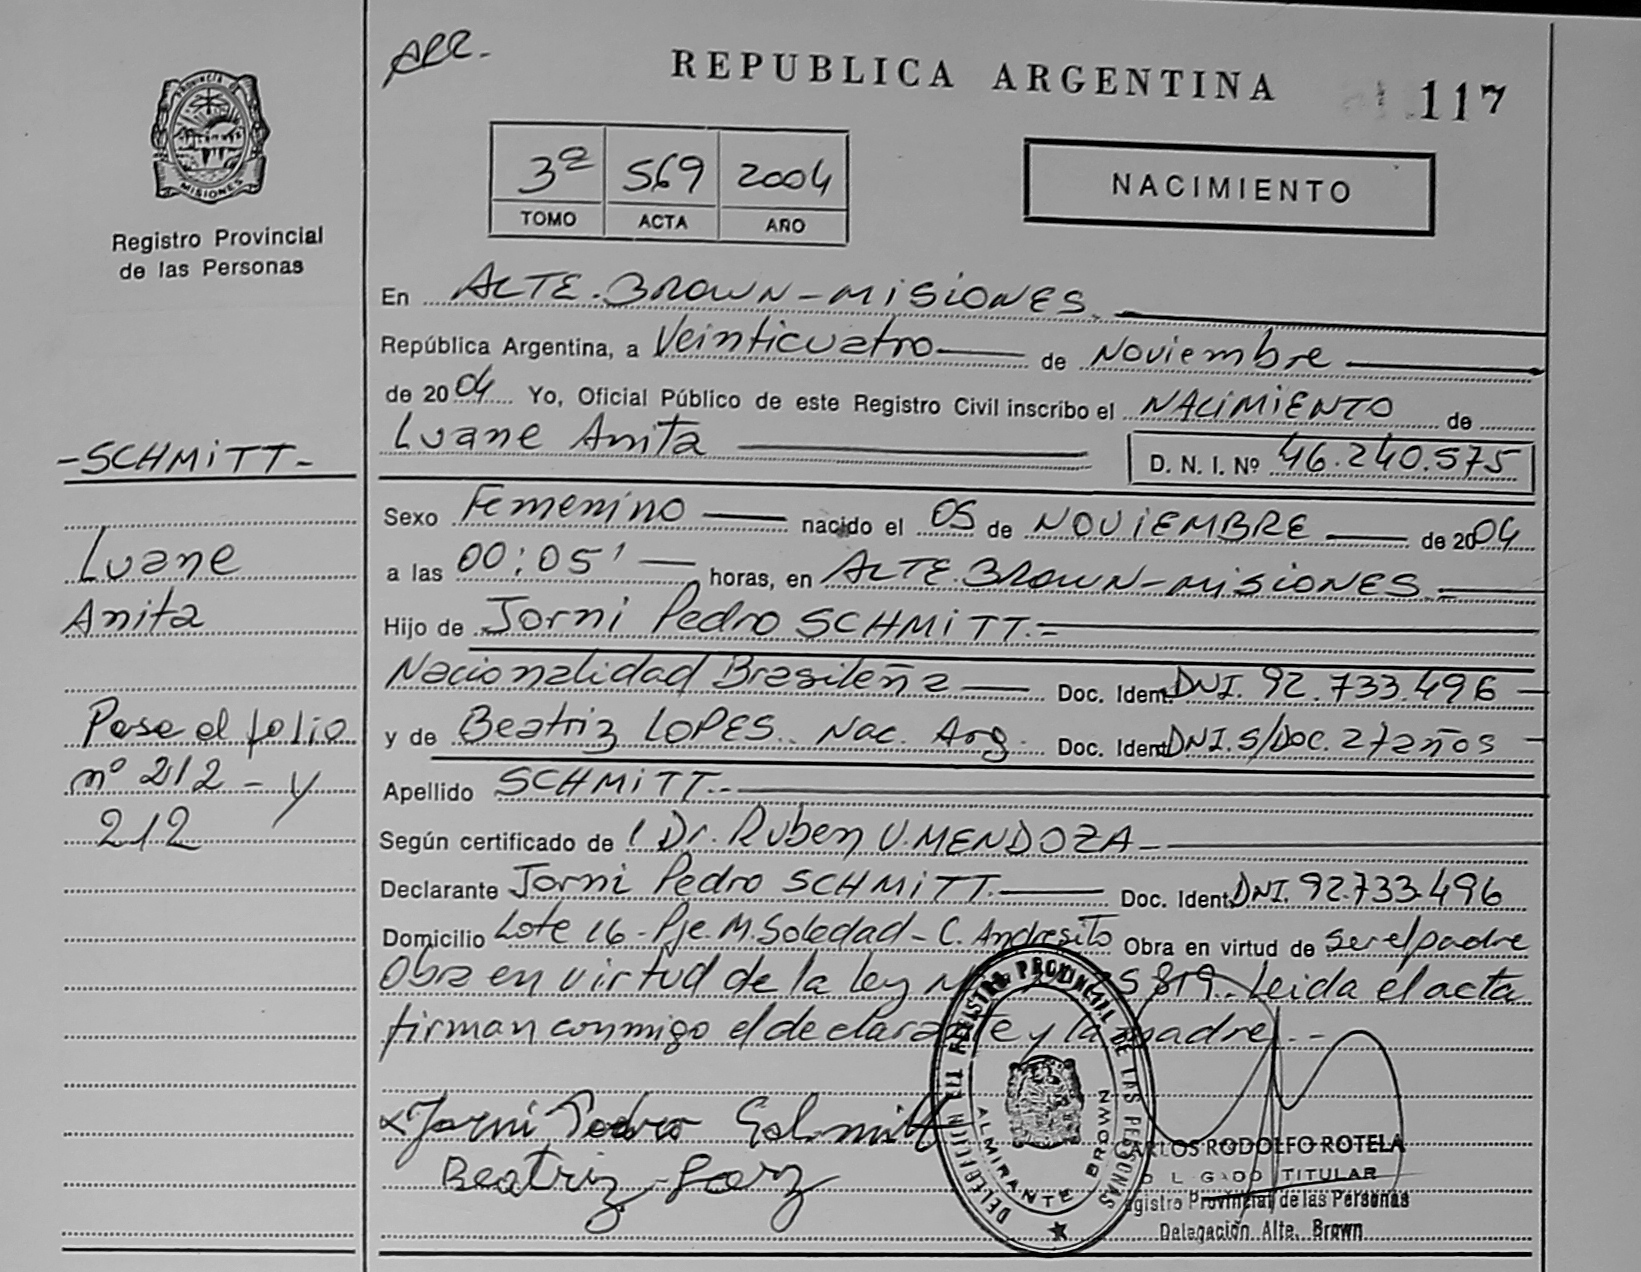 APR.
REPUBLICA ARGENTINA
117
PROVINCIA
MISIONES
Registro Provincial
de las Personas
3ª 569 2004
TOMO ACTA AÑO
NACIMIENTO
En ALTE. BROWN - MISIONES.
República Argentina, a Veinticuatro de Noviembre
de 2004 Yo, Oficial Público de este Registro Civil inscribo el NACIMIENTO de
Luane Anita D. N. I. Nº 46.240.575
Sexo Femenino nacido el 05 de NOVIEMBRE de 2004
a las 00:05' horas, en ALTE. BROWN - MISIONES.
Hijo de Jorni Pedro SCHMITT.=
Nacionalidad Brasileña Doc. Ident. DNI. 92.733.496
y de Beatriz LOPES. Nac. Arg. Doc. Ident. DNI. S/Doc. 27 años
Apellido SCHMITT.
Según certificado de l Dr. Ruben U. MENDOZA
Declarante Jorni Pedro SCHMITT. Doc. Ident. DNI. 92.733.496
Domicilio Lote 16 - Pje. M. Soledad - C. Andresito Obra en virtud de ser el padre
Obra en virtud de la ley 819.- Leida el acta
firman conmigo el declarante y la madre.-
Jorni Pedro Schmitt
Beatriz
-SCHMITT-
Luane
Anita
Pase al folio
nº 212 - y
212
REGISTRO PROVINCIAL DE LAS PERSONAS
ALMIRANTE BROWN
CARLOS RODOLFO ROTELA
TITULAR
Registro Provincial de las Personas
Delegación Alte. Brown